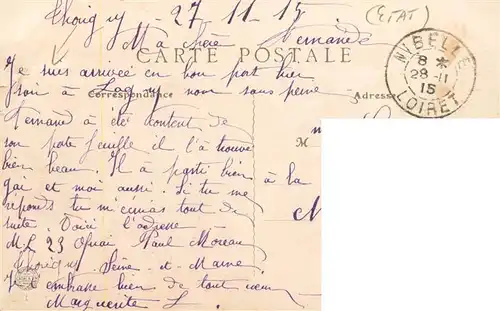 Thorigny 27-11-15 (ETAT)
Ma chère Fernande
CARTE POSTALE
Je suis arrivée en bon port hier
soir à Lagny non sans peine
Correspondance Adresse
NIBELLE
8 *
28-11
15
LOIRET
Fernand à été content de
son porte feuille il l'a trouvé
bien beau. Il à parti bien
M
gai et moi aussi. Si tu me à la
réponds tu m'écriras tout de
suite. Voici l'adresse
M. L 23 Quai Paul Moreau
Thorigny. Seine-et-Marne
Je t'embrasse bien de tout cœur
Marguerite L.